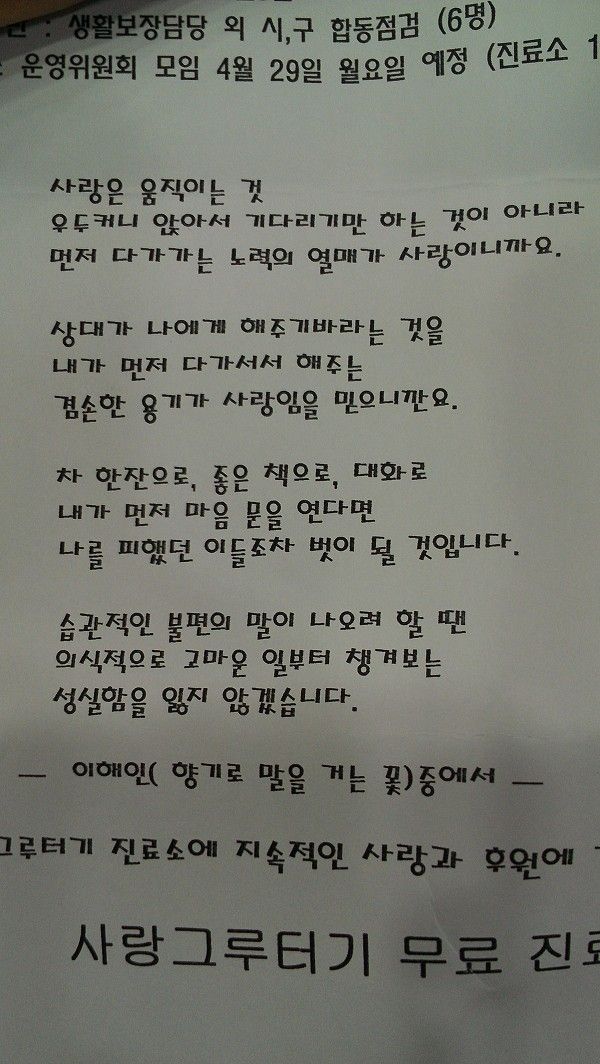 : 생활보장담당 외 시,구 합동점검 (6명)
: 운영위원회 모임 4월 29일 월요일 예정 (진료소 1
사랑은 움직이는 것
우두커니 앉아서 기다리기만 하는 것이 아니라
먼저 다가가는 노력의 열매가 사랑이니까요.
상대가 나에게 해주기바라는 것을
내가 먼저 다가서서 해주는
겸손한 용기가 사랑임을 믿으니깐요.
차 한잔으로, 좋은 책으로, 대화로
내가 먼저 마음 문을 연다면
나를 피했던 이들조차 벗이 될 것입니다.
습관적인 불편의 말이 나오려 할 땐
의식적으로 고마운 일부터 챙겨보는
성실함을 잃지 않겠습니다.
— 이해인( 향기로 말을 거는 꽃)중에서 —
그루터기 진료소에 지속적인 사랑과 후원에
사랑그루터기 무료 진료